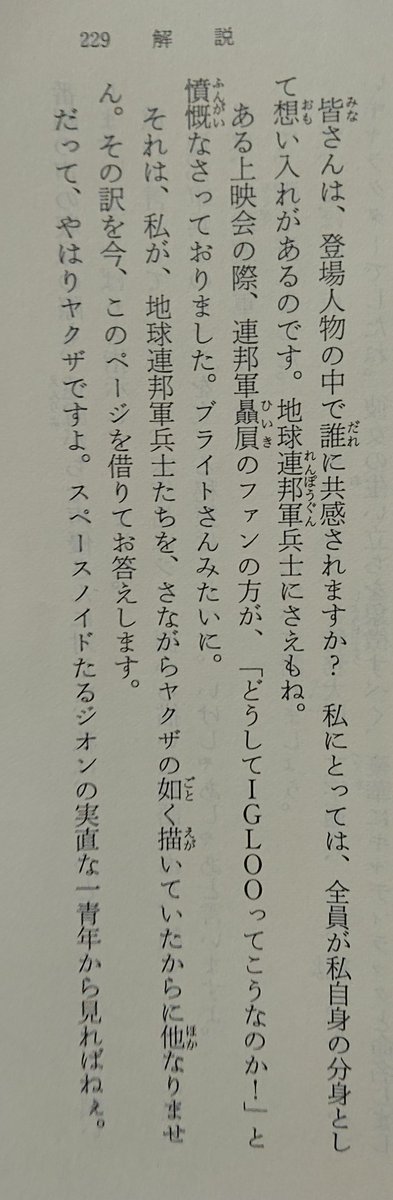 229 解説
皆さんは、登場人物の中で誰に共感されますか? 私にとっては、全員が私自身の分身とし
て想い入れがあるのです。地球連邦軍兵士にさえもね。
ある上映会の際、連邦軍贔屓のファンの方が、「どうしてIGLOOってこうなのか!」と
憤慨なさっておりました。ブライトさんみたいに。
それは、私が、地球連邦軍兵士たちを、さながらヤクザの如く描いていたからに他なりませ
ん。その訳を今、このページを借りてお答えします。
だって、やはりヤクザですよ。スペースノイドたるジオンの実直な一青年から見ればねぇ。